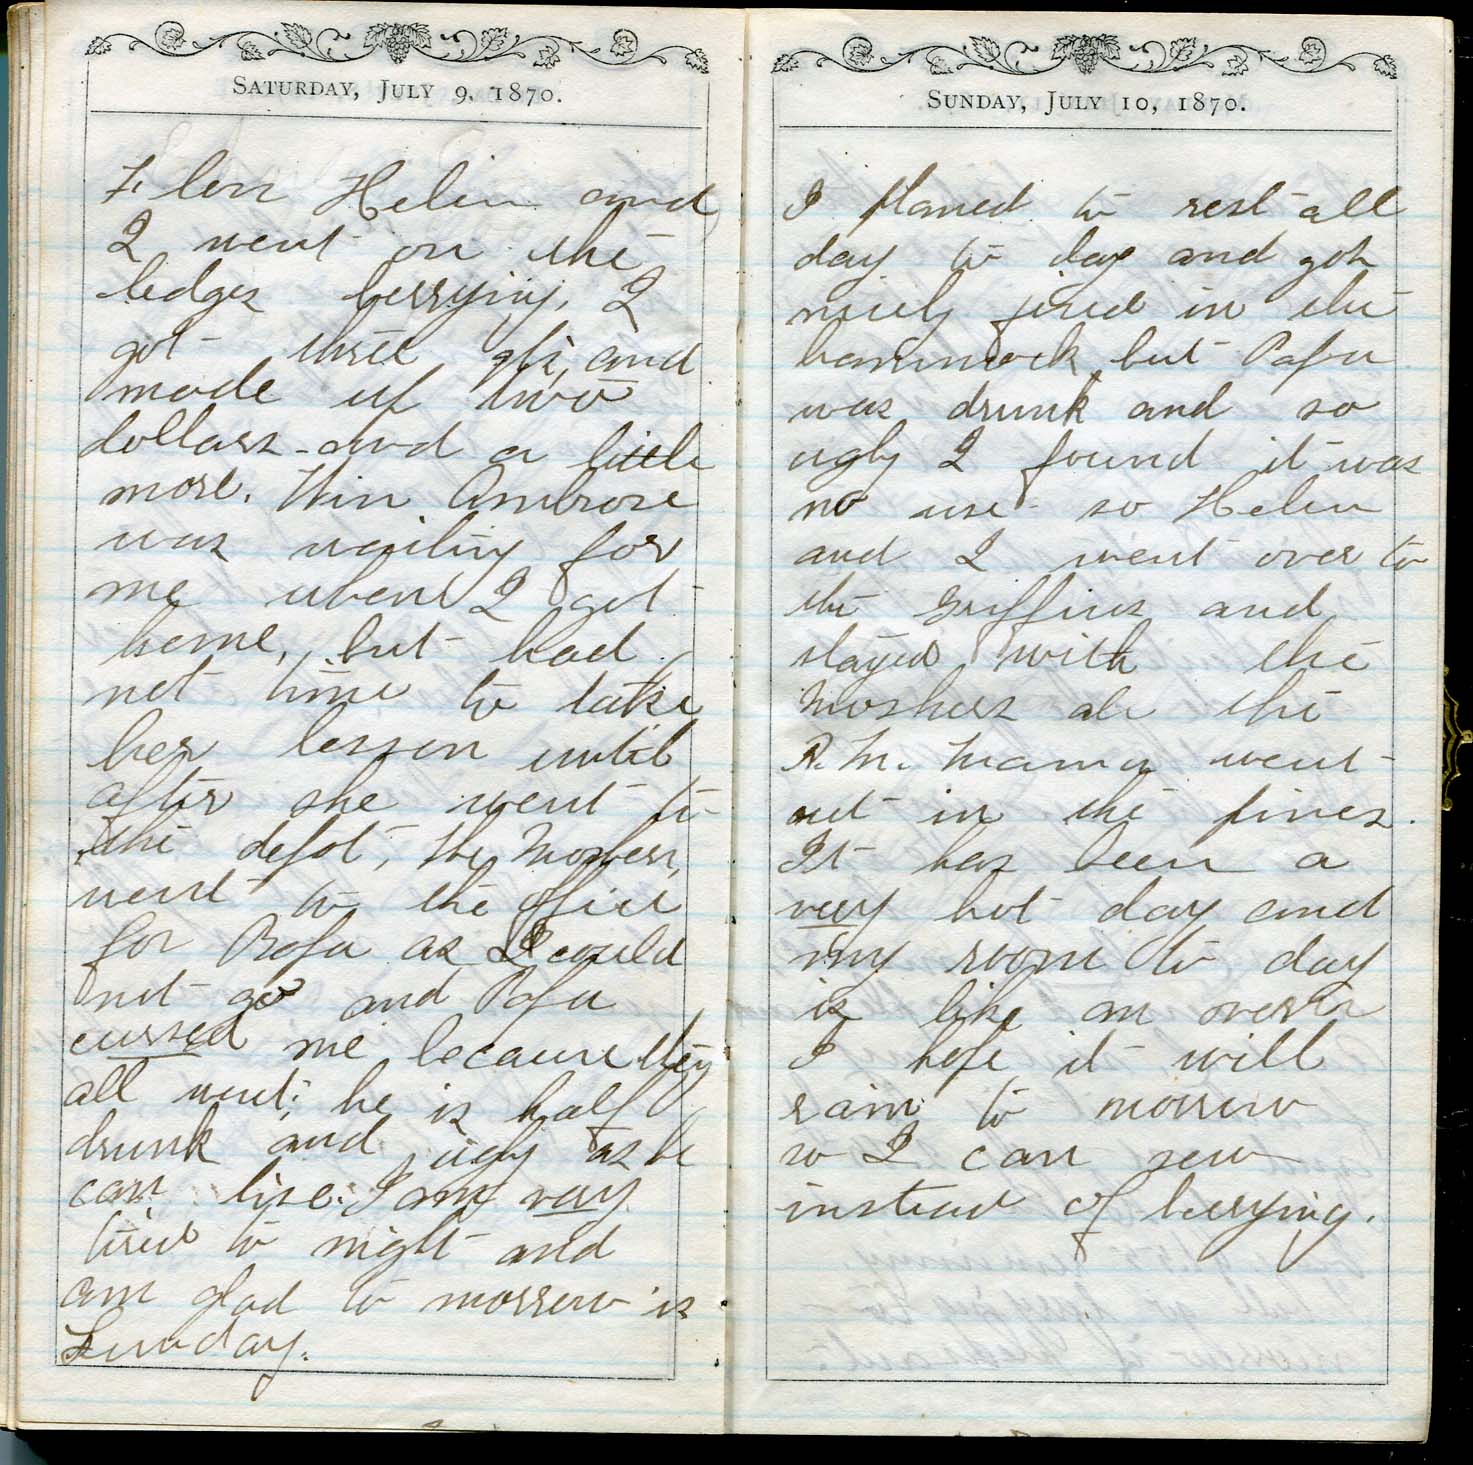 SATURDAY, JULY 9, 1870.
Helen and
I went on the
ledges berrying, I
got three qts, and
made up two
dollars and a little
more. Win Ambrose
was waiting for
me when I got
home, but had
not time to take
her lesson until
after she went to
the depot, the Moshers,
went to the office
for Papa as I could
not go and Papa
cussed me because they
all went; he is half
drunk and ugly as he
can live. I am very
tired to night and
am glad to morrow is
Sunday.
SUNDAY, JULY 10, 1870.
I planed to rest all
day to day and got
nicely fixed in the
hammock but Papa
was drunk and so
ugly I found it was
no use so Helen
and I went over to
the Griffins and
stayed with the
Moshers all the
P.M. Mama went
out in the pines.
It has been a
very hot day and
my room to day
is like an oven
I hope it will
rain to morrow
so I can sew
instead of berrying.